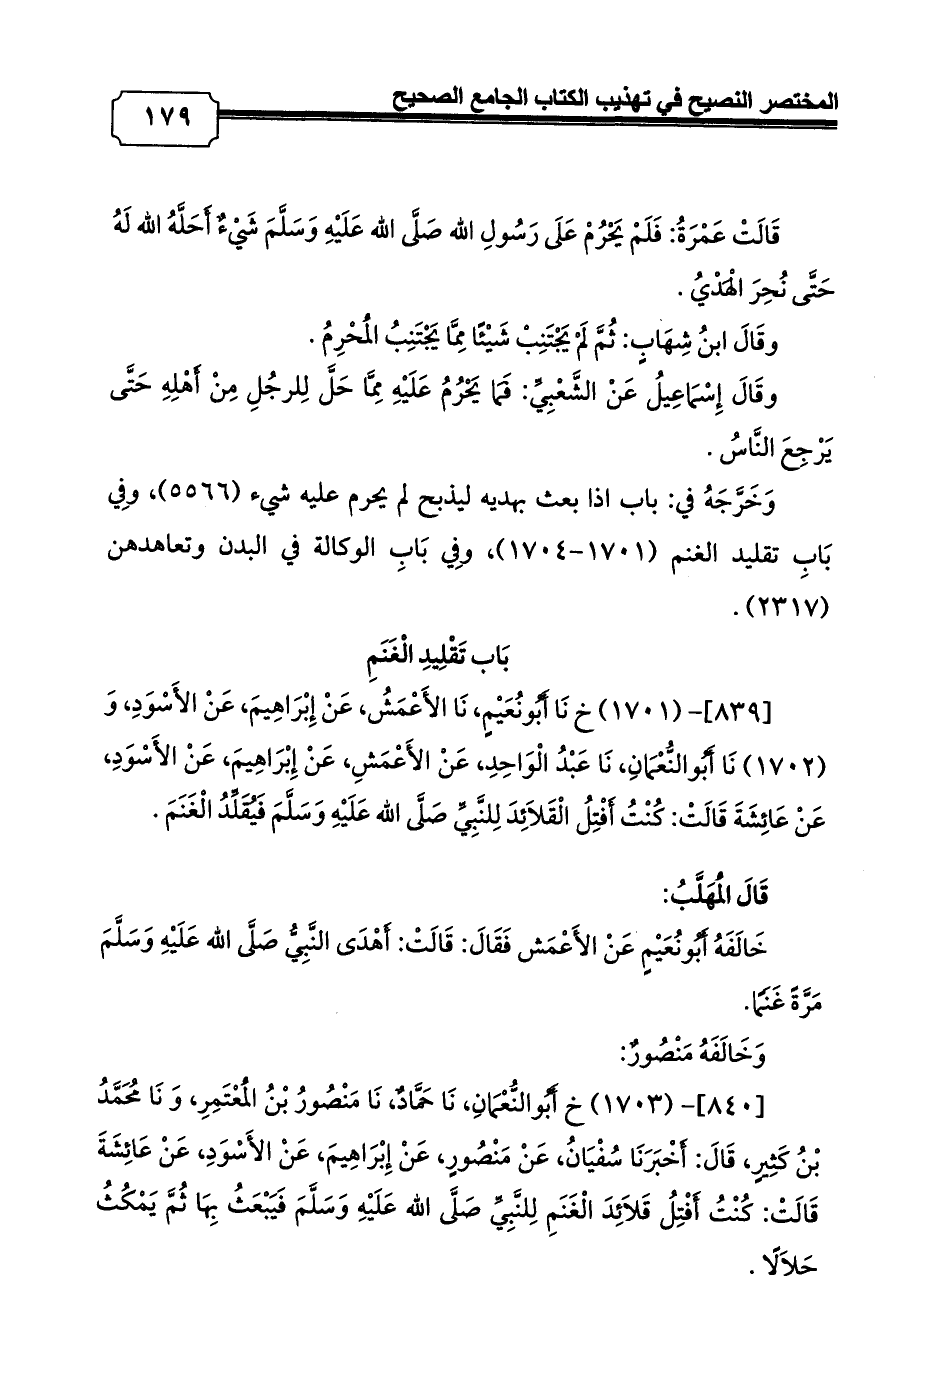 المختصر النصيح في تهذيب الكتاب الجامع الصحيح
١٧٩
قَالَتْ عَمْرَةُ: فَلَمْ يَحْرُمْ عَلَى رَسُولِ الله صَلَّى الله عَلَيْهِ وَسَلَّمَ شَيْءٌ أَحَلَّهُ الله لَهُ
حَتَّى نُحِرَ الْهَدْيُ .
وقَالَ ابنُ شِهَابٍ: ثُمَّ لَمْ يَجْتَنِبْ شَيْئًا مِمَّا يَجْتَنِبُ الْمُحْرِمُ .
وقَالَ إِسْمَاعِيلُ عَنْ الشَّعْبِيِّ: فَمَا يَحْرُمُ عَلَيْهِ مِمَّا حَلَّ لِلرجُلِ مِنْ أَهْلِهِ حَتَّى
يَرْجِعَ النَّاسُ .
وَخَرَّجَهُ في: باب اذا بعث بهديه ليذبح لم يحرم عليه شيء (٥٥٦٦)، وفِي
بَابِ تقليد الغنم (١٧٠١-١٧٠٤)، وفِي بَابِ الوكالة في البدن وتعاهدهن
(٢٣١٧) .
بَاب تَقْلِيدِ الْغَنَمِ
[٨٣٩]- (١٧٠١) خ نَا أَبُونُعَيْمٍ، نَا الأَعْمَشُ، عَنْ إِبْرَاهِيمَ، عَنْ الأَسْوَدِ، وَ
(١٧٠٢) نَا أَبُوالنُّعْمَانِ، نَا عَبْدُ الْوَاحِدِ، عَنْ الأَعْمَشِ، عَنْ إِبْرَاهِيمَ، عَنْ الأَسْوَدِ،
عَنْ عَائِشَةَ قَالَتْ: كُنْتُ أَفْتِلُ الْقَلاَئِدَ لِلنَّبِيِّ صَلَّى الله عَلَيْهِ وَسَلَّمَ فَيُقَلِّدُ الْغَنَمَ .
قَالَ الْمُهَلَّبُ:
خَالَفَهُ أَبُونُعَيْمٍ عَنْ الأَعْمَش فَقَالَ: قَالَتْ: أَهْدَى النَّبِيُّ صَلَّى الله عَلَيْهِ وَسَلَّمَ
مَرَّةً غَنَمًا.
وَخَالَفَهُ مَنْصُورٌ:
[٨٤٠]- (١٧٠٣) خ أَبُوالنُّعْمَانِ، نَا حَمَّادٌ، نَا مَنْصُورُ بْنُ الْمُعْتَمِرِ، وَ نَا مُحَمَّدُ
بْنُ كَثِيرٍ، قَالَ: أَخْبَرَنَا سُفْيَانُ، عَنْ مَنْصُورٍ، عَنْ إِبْرَاهِيمَ، عَنْ الأَسْوَدِ، عَنْ عَائِشَةَ
قَالَتْ: كُنْتُ أَفْتِلُ قَلاَئِدَ الْغَنَمِ لِلنَّبِيِّ صَلَّى الله عَلَيْهِ وَسَلَّمَ فَيَبْعَثُ بِهَا ثُمَّ يَمْكُثُ
حَلاَلًا .